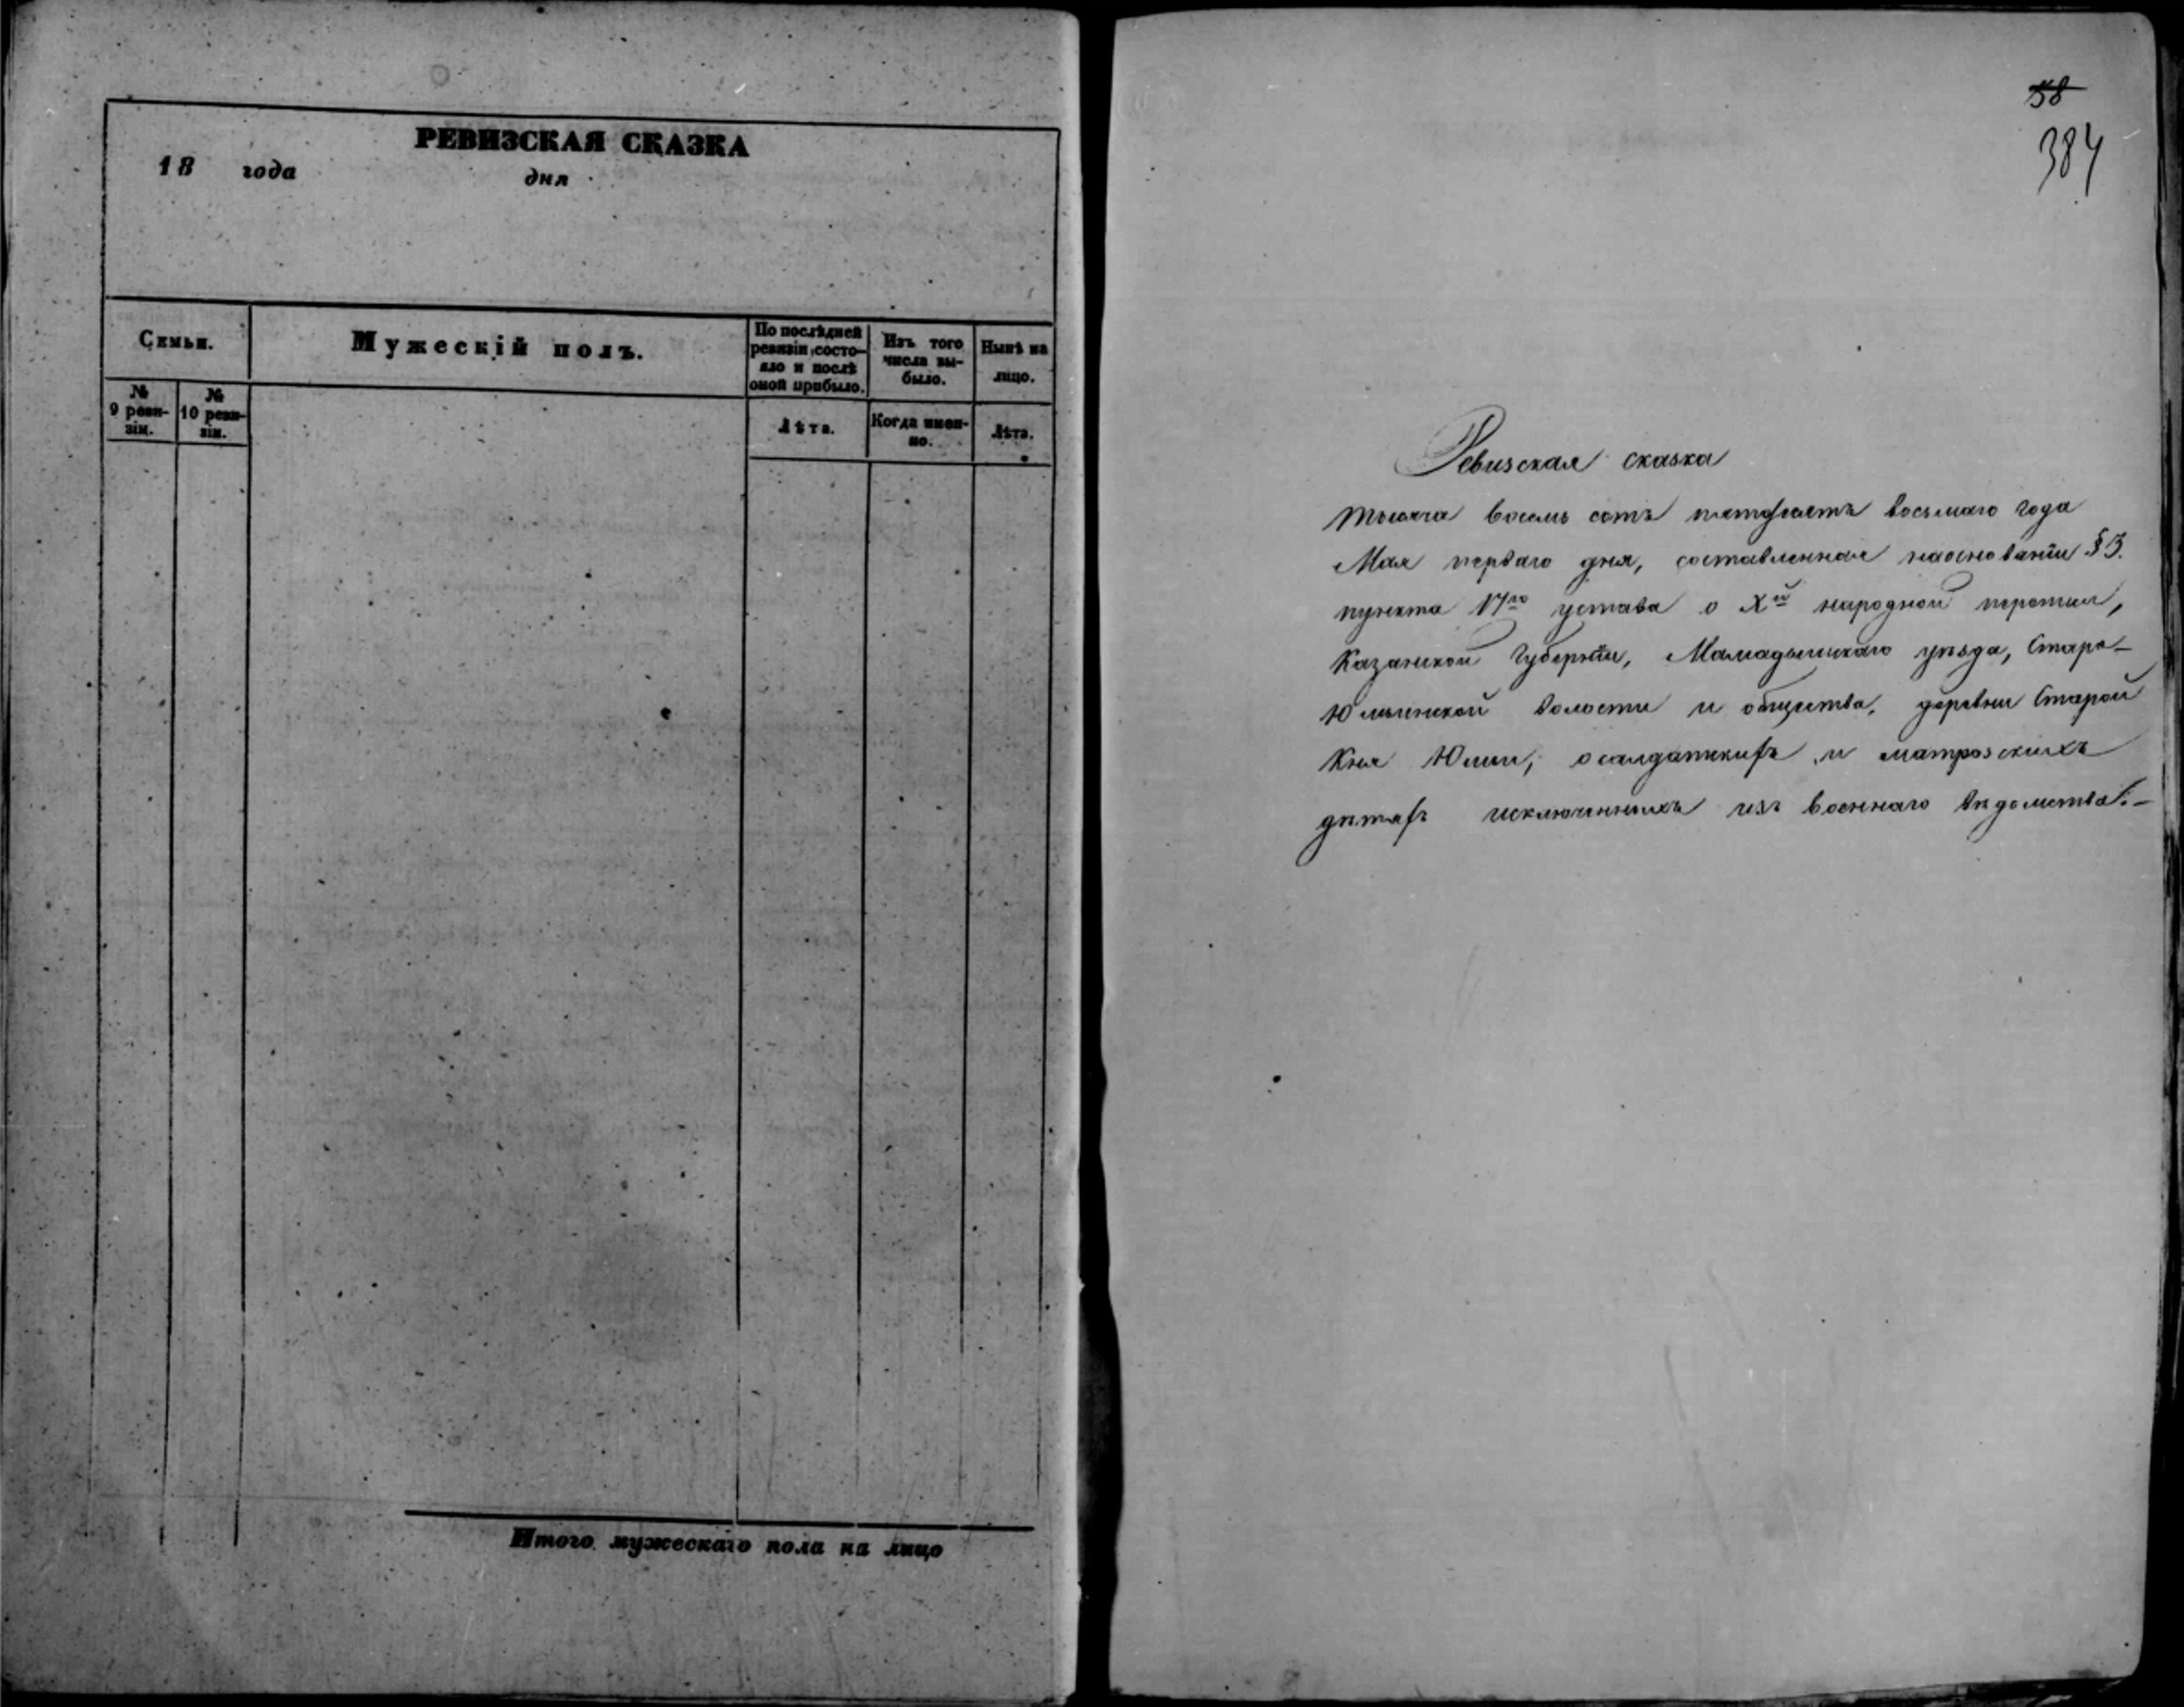 РЕВИЗСКАЯ СКАЗКА
18 года дня
Семьи.
Мужескій полъ.
По послѣдней
ревизіи состо-
яло и послѣ
оной прибыло.
Изъ того
числа вы-
было.
Нынѣ на
лицо.
№
9 реви-
зіи.
№
10 реви-
зіи.
Лѣта.
Когда имен-
но.
Лѣта.
Итого мужескаго пола на лицо
58
384
Ревизская сказка
тысяча восемь сотъ пятьдесятъ восьмаго года
Мая перваго дня, составленная наосновании § 3.
пункта 17го устава о Xй народной переписи,
Казанской Губерніи, Мамадышскаго уѣзда, Старо-
Юмьинской волости и общества, деревни Старой
Кня Юмьи, о салдатскихъ и матросскихъ
дѣтяхъ исключенныхъ изъ военнаго вѣдомства.-